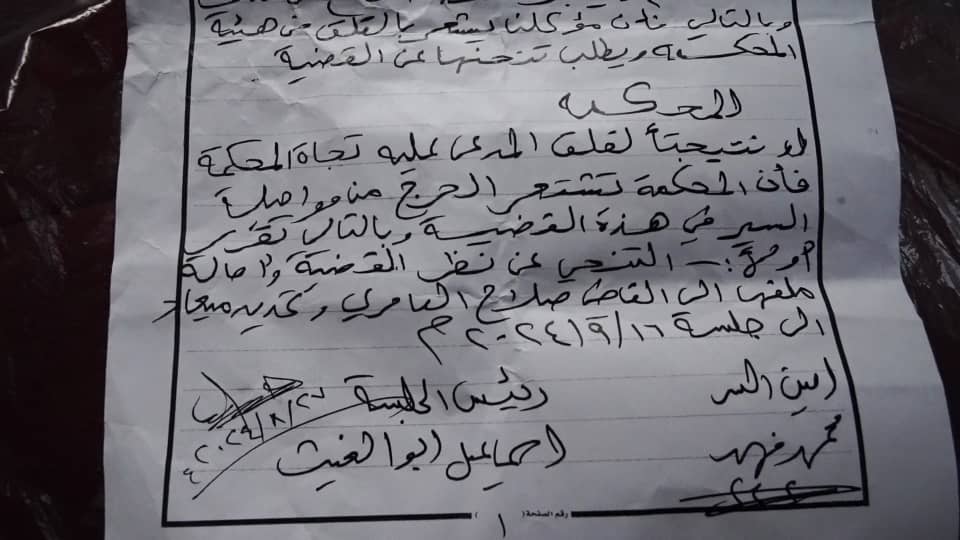 وبالتالي فإن مؤكلنا يشعر بالقلق من هيئة
المحكمة ويطلب تنحيتها عن القضية
المحكمة
نتيجتاً لقلق المدعى عليه تجاة المحكمة
فأن المحكمة تشتعر الحرج من مواصلة
السير في هذة القضية وبالتالي تقرر
أولاً :- التنحي عن نظر القضية واحالة
ملفها الى القاضي صلاح العامري وتحديد ميعاد
الى جلسة ٢٠٢٤/٩/١٦م
امين السر رئيس الجلسة
محمد فهد اسماعيل ابوالغيث
٢٠٢٤/٨/
رقم الصفحة ( ١ )